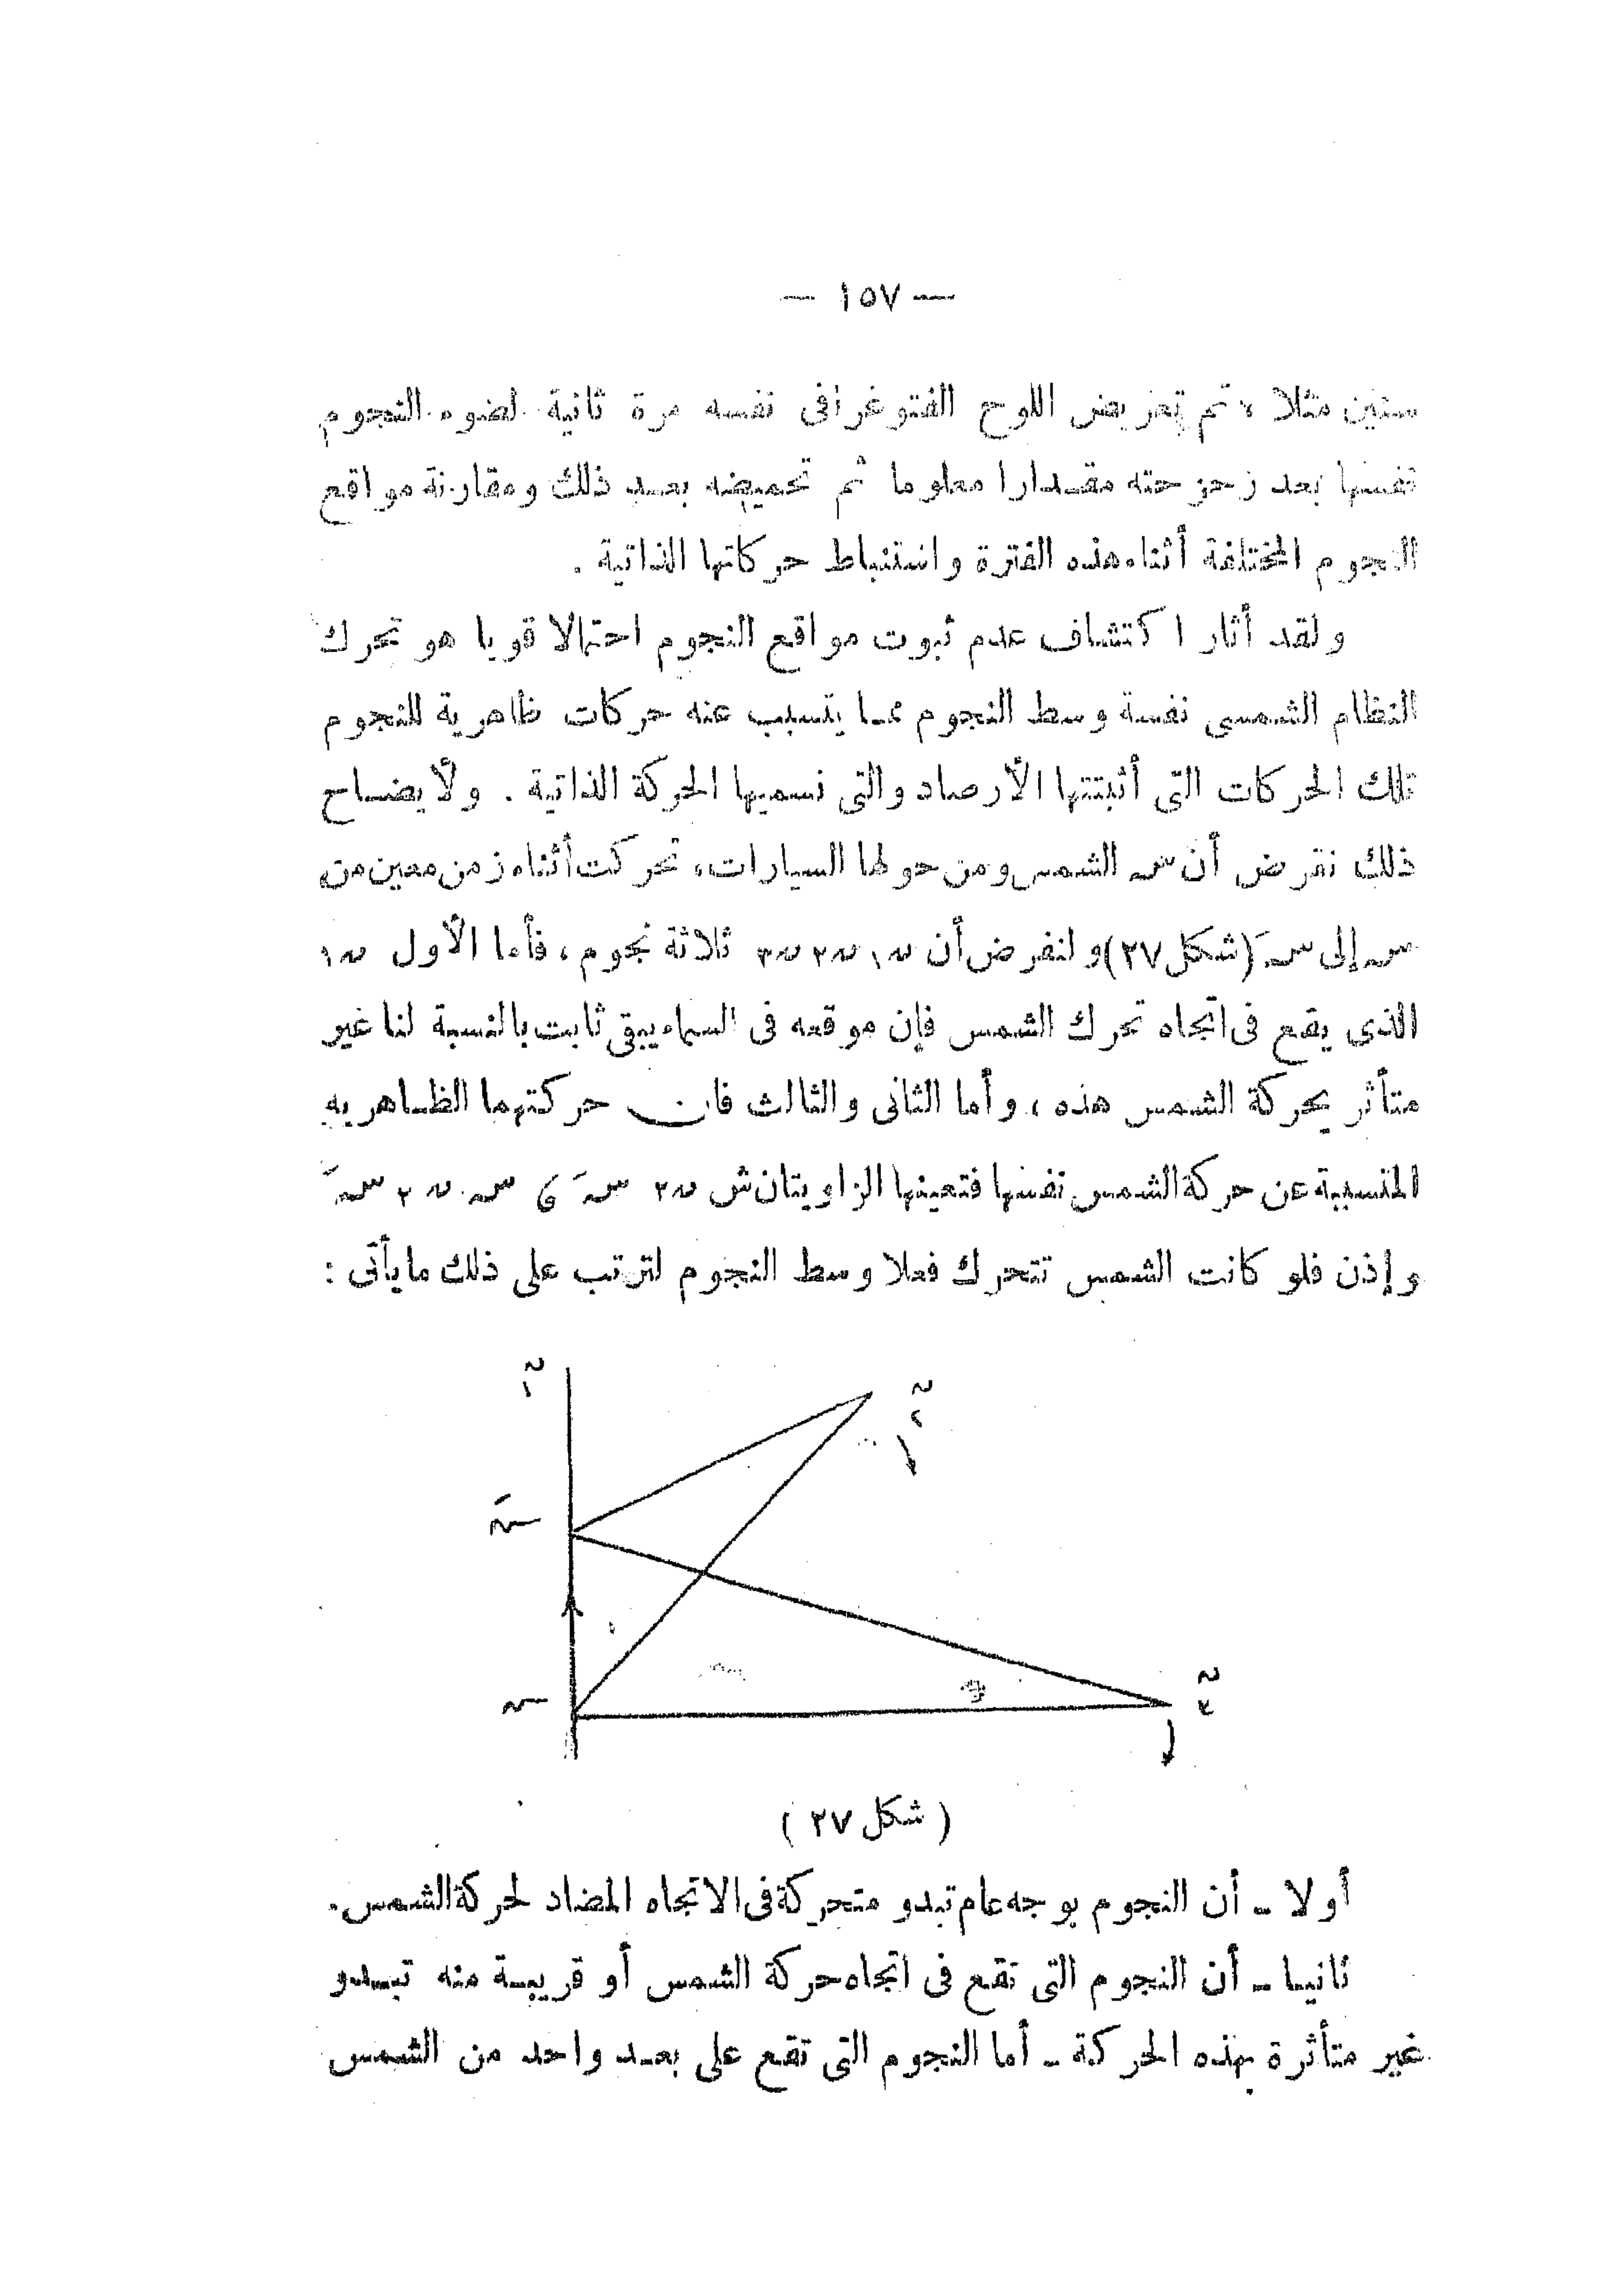 — ١٥٧ —
سنين مثلا ، تم تعريض اللوح الفتوغرافى نفسه مرة ثانية لضوء النجوم
نفسها بعد زحزحته مقدارا معلوما ثم تحميضه بعد ذلك ومقارنة مواقع
النجوم المختلفة أثناء هذه الفترة واستنباط حركاتها الذاتية .
ولقد أثار اكتشاف عدم ثبوت مواقع النجوم احتمالا قويا هو تحرك
النظام الشمسى نفسة وسط النجوم مما يتسبب عنه حركات ظاهرية للنجوم
تلك الحركات التى أثبتتها الأرصاد والتى نسميها الحركة الذاتية . ولأيضاح
ذلك نفرض أن س الشمس ومن حولها السيارات، تحركت أثناء زمن معين من
س إلى سَ (شكل ٢٧) ولنفرض أن ن١ ن٢ ن٣ ثلاثة نجوم ، فأما الأول ن١
الذى يقع فى اتجاه تحرك الشمس فإن موقعه فى السماء يبقى ثابت بالنسبة لنا غير
متأثر بحركة الشمس هذه ، وأما الثانى والثالث فان حركتهما الظاهريه
المتسببة عن حركة الشمس نفسها فتعينها الزاويتان ش ن٢ سَ ، س ن٢ سَ
وإذن فلو كانت الشمس تتحرك فعلا وسط النجوم لترتب على ذلك ما يأتى :
ن١
ن٢
سَ
س
ن٣
( شكل ٢٧ )
أولا - أن النجوم بوجه عام تبدو متحركة فى الاتجاه المضاد لحركة الشمس.
ثانيا - أن النجوم التى تقع فى اتجاه حركة الشمس أو قريبة منه تبدو
غير متأثرة بهذه الحركة - أما النجوم التى تقع على بعد واحد من الشمس